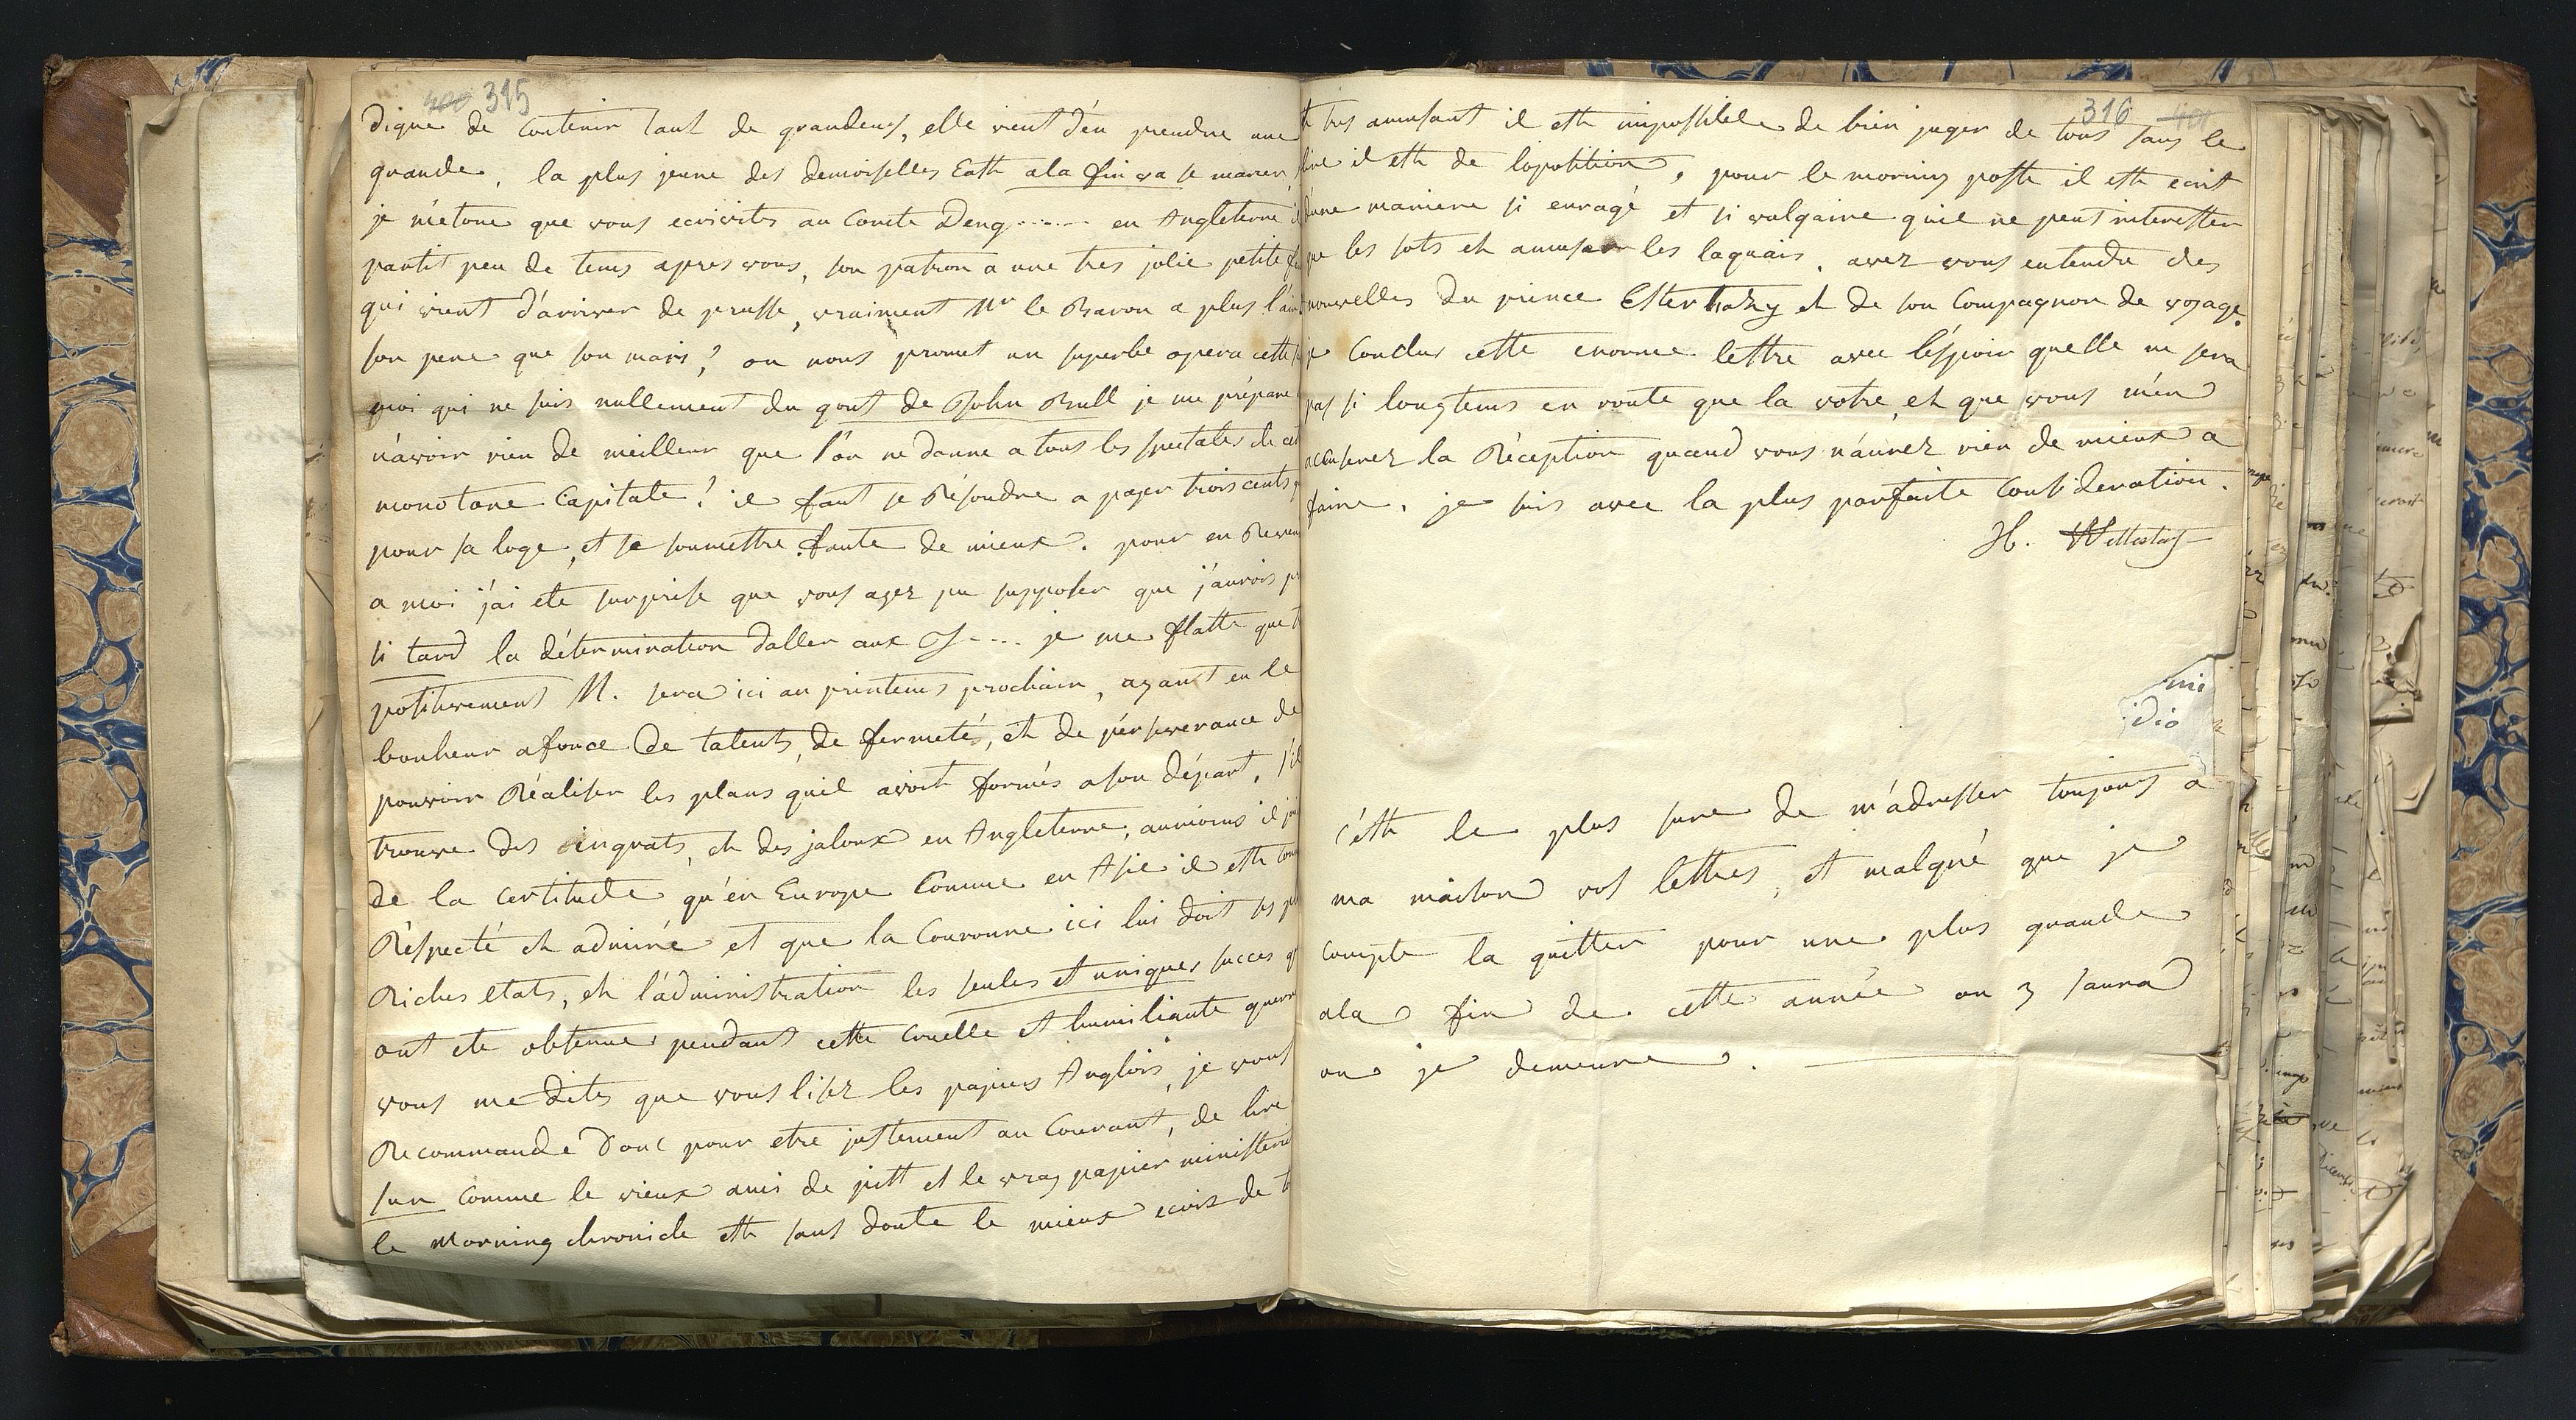 400 315
digne de Contenir tant de grandeurs, elle vient d'en prendre une
grande. la plus jeune des demoiselles Eath ala fin va se marier,
je m'etone que vous ecrivites au Comte Deng...... en Angleterre il
partit peu de tems apres vous, son patron a une tres jolie petite
qui vient d'arriver de prusse, vraiment Mr le Baron a plus l'air
son pere que son mari? on nous promet un superbe opera cette
moi qui ne suis nullement du gout de John Bull je me prépare
n'avoir rien de meilleur que l'on ne donne a tous les spectales de
monotone Capitale! il faut se Résoudre a payer trois cents
pour sa loge, et se soumettre faute de mieux. pour en
a moi j'ai eté surprise que vous ayez pu supposer que j'aurois
si tard la détermination daller aux .... je me flatte que
positivement M. sera ici au printems prochain, ayant eu le
bonheur aforce de talents, de fermetés, et de pérseverance de
pouvoir Réaliser les plans quil avoit formés a son départ, s'il
trouve des ingrats, et des jaloux en Angleterre, aumoins il
de la certitude qu'en Europe Comme en Asie il esth
Réspecté et admiré et que la Couronne ici lui doit ses
Riches etats, et l'administration les seules et uniques succes
ont ete obtenue pendant cette cruelle et humiliante
vous me dites que vous lisez les papiers Anglois, je vous
Recommande donc pour etre justement au Courant, de lire
sun Comme le vieux ami de pitt et le vray papier
le Morning chronicle esth sans doute le mieux ecrit de
316 401
tres amusant il esth impossible de bien juger de tous sans le
lire il esth de loposition, pour le morning poste il esth ecrit
d'une maniere si enragé et si vulgaire quil ne peut interesser
que les sots et amuser les laquais. avez vous entendu des
nouvelles du prince Esterhazy et de son Compagnon de voyage.
je Conclus cette enorme lettre avec l'éspoir quelle ne sera
pas si longtems en route que la votre, et que vous m'en
accuserez la Réception quand vous n'aurez rien de mieux a
faire. je suis avec la plus parfaite Consideration.
H.
mi
dio
c'esth le plus sure de m'adresser toujours a
ma maison vos lettres, et malgré que je
compte la quitter pour une plus grande
ala fin de cette année on y saura
ou je demeure.